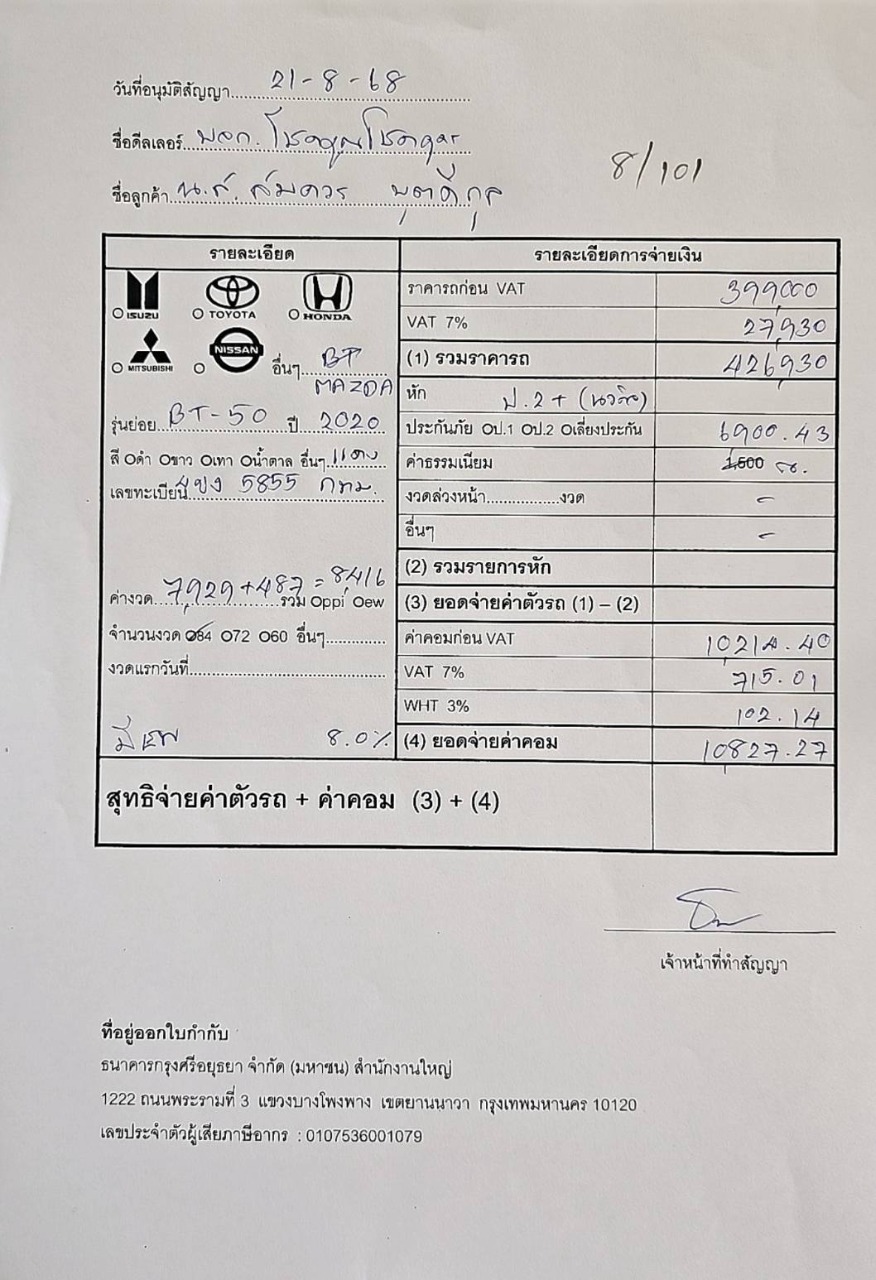 วันที่อนุมัติสัญญา 21-8-68
ชื่อดีลเลอร์ หจก.
8/101
ชื่อลูกค้า น.ส. สมควร
รายละเอียด
รายละเอียดการจ่ายเงิน
ISUZU TOYOTA HONDA
ราคารถก่อน VAT 399,000
VAT 7% 27,930
MITSUBISHI NISSAN อื่นๆ BT MAZDA
(1) รวมราคารถ 426,930
หัก ป.2+
รุ่นย่อย BT-50 ปี 2020
ประกันภัย Oป.1 Oป.2 Oเลี่ยงประกัน 6900.43
สี Oดำ Oขาว Oเทา Oน้ำตาล อื่นๆ แดง
ค่าธรรมเนียม 1,500
เลขทะเบียน 5855 กทม.
งวดล่วงหน้า.................งวด -
อื่นๆ -
(2) รวมรายการหัก
ค่างวด 7,929+487 = 8416 รวม Oppi Oew
(3) ยอดจ่ายค่าตัวรถ (1) – (2)
จำนวนงวด O84 O72 O60 อื่นๆ.............
ค่าคอมก่อน VAT 10,214.40
งวดแรกวันที่
VAT 7% 715.01
WHT 3% 102.14
8.0%
(4) ยอดจ่ายค่าคอม 10,827.27
สุทธิจ่ายค่าตัวรถ + ค่าคอม (3) + (4)
เจ้าหน้าที่ทำสัญญา
ที่อยู่ออกใบกำกับ
ธนาคารกรุงศรีอยุธยา จำกัด (มหาชน) สำนักงานใหญ่
1222 ถนนพระรามที่ 3 แขวงบางโพงพาง เขตยานนาวา กรุงเทพมหานคร 10120
เลขประจำตัวผู้เสียภาษีอากร : 0107536001079